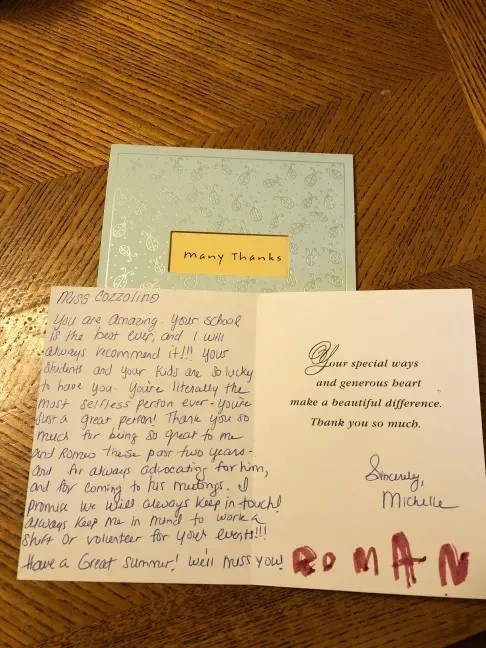 many Thanks
Miss Cozzolino
You are amazing. Your school
is the best ever, and I will
always recommend it!!! Your
students and your kids are so lucky
to have you. You're literally the
most selfless person ever - you're
just a great person! Thank you so
much for being so great to me
and Romeo these past two years -
and for always advocating for him,
and for coming to his meetings. I
promise we will always keep in touch!
Always keep me in mind to work a
shift or volunteer for your events!!!
Have a Great summer! We'll miss you!
Your special ways
and generous heart
make a beautiful difference.
Thank you so much.
Sincerely,
Michelle
ROMAN